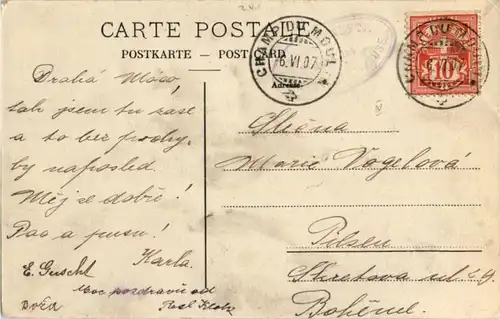 CARTE POSTALE
POSTKARTE - POST CARD
CHAMP DU MOULIN
6.VI.07
Adresse.
10
Drahá Máco!
tak jsem tu zase
a to bez prochy,
by naposled.
Měj se dobře!
Pac a pusu!
Karla.
E. Guscht
Moc pozdravů od
Slečna
Marie Vogelová
Pilsen
Skretova ul 29.
Bohême.